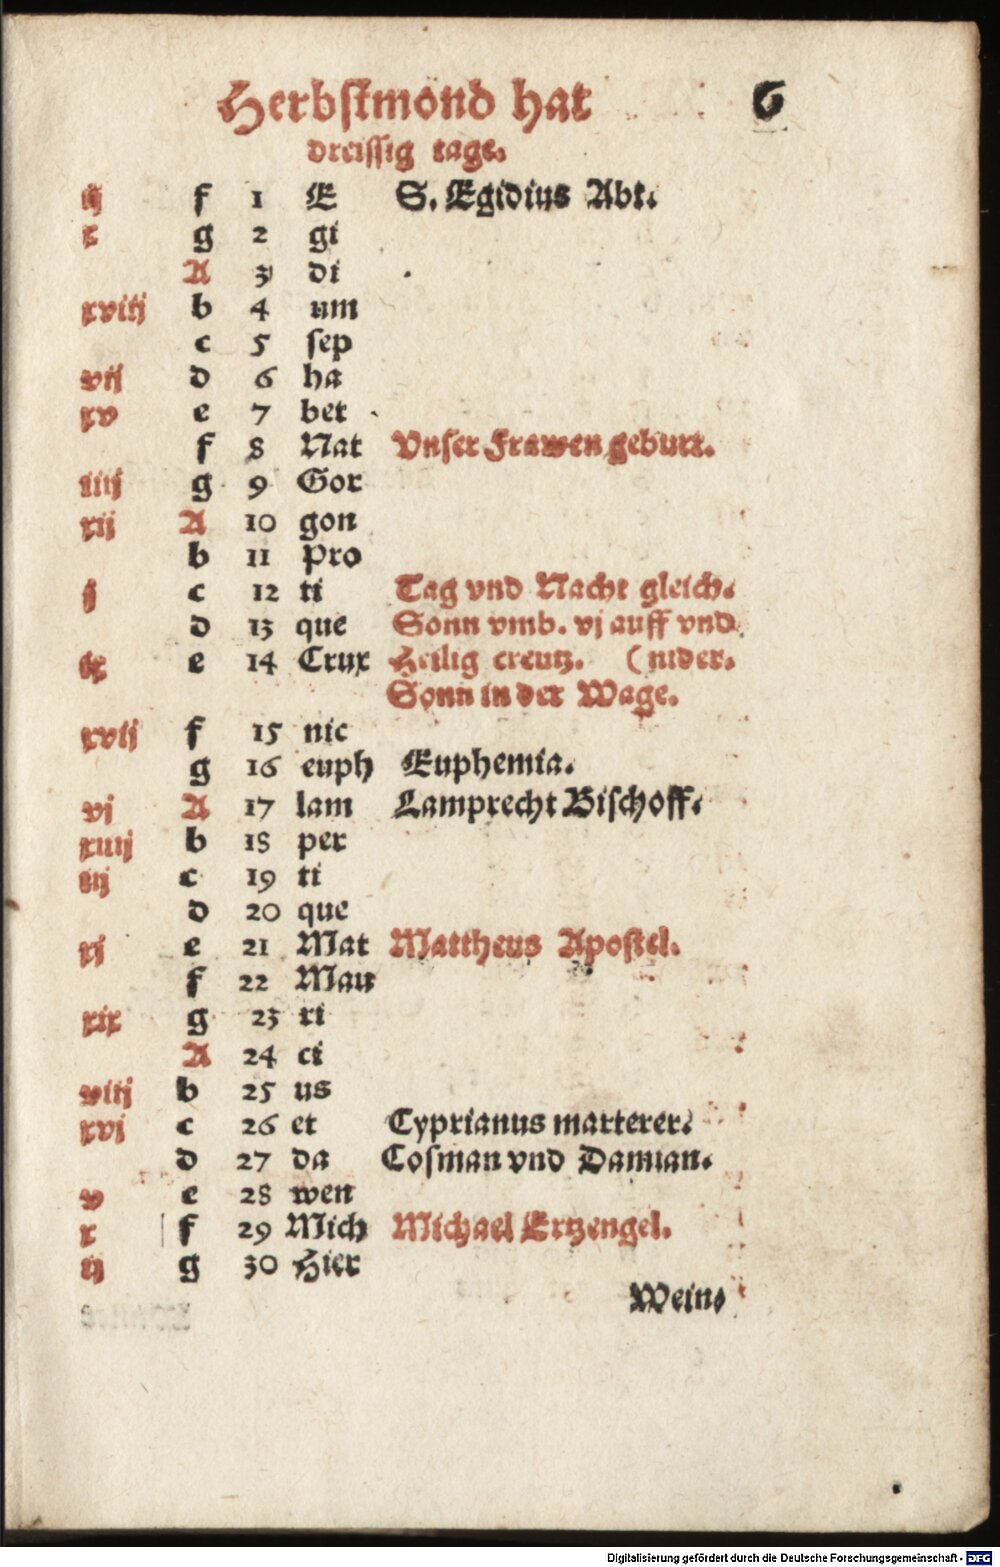 Herbstmond hat 6
dreissig tage.
ij f 1 E S. Egidius Abt.
x g 2 gi
A 3 di
xviij b 4 um
c 5 sep
vij d 6 ha
xv e 7 bet
f 8 Nat Vnser Frawen geburt.
iiij g 9 Gor
xij A 10 gon
b 11 Pro
j c 12 ti Tag vnd Nacht gleich.
d 13 que Sonn vmb. vj auff vnd
ix e 14 Crux Heilig creutz. (nider.
Sonn in der Wage.
xvij f 15 nic
g 16 euph Euphemia.
vj A 17 lam Lamprecht Bischoff.
xiiij b 18 per
iij c 19 ti
d 20 que
xj e 21 Mat Mattheus Apostel.
f 22 Mau
xix g 23 ri
A 24 ci
viij b 25 us
xvj c 26 et Cyprianus marterer.
d 27 da Cosman vnd Damian.
v e 28 wen
x f 29 Mich Michael Ertzengel.
ij g 30 Hier
Wein-
Digitalisierung gefördert durch die Deutsche Forschungsgemeinschaft - DFG